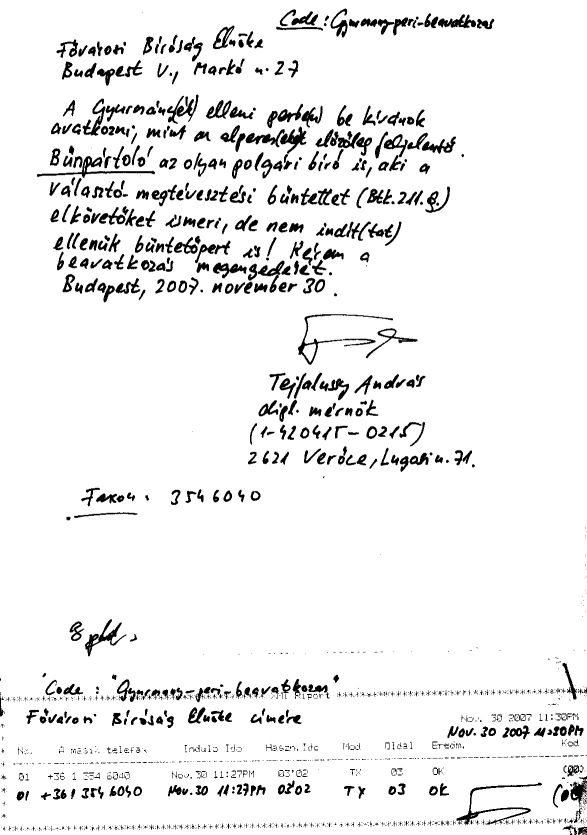 Code: Gyurcsany-peri-beavatkozas
Fővárosi Bíróság Elnöke
Budapest V., Markó u. 27
A Gyurcsány(ék) elleni perbe(n) be kívánok
avatkozni, mint az alperes(eke)t előzőleg feljelentő.
Bűnpártoló az olyan polgári bíró is, aki a
választó-megtévesztési bűntettet (Btk. 211. §.)
elkövetőket ismeri, de nem indít(tat)
ellenük büntetőpert is! Kérem a
beavatkozás megengedését.
Budapest, 2007. november 30.
Tejfalussy András
dipl. mérnök
(1-420415-0215)
2621 Verőce, Lugosi u. 71.
Faxon: 3546040
"Code: "Gyurcsany-peri-beavatkozas"
Riport
Fővárosi Bíróság Elnöke címére
Nov. 30 2007 11:30PM
Nov. 30 2007 11:30PM
No. A masik telefax Indulo Ido Haszn.Ido Mod Oldal Eredm. Kod
01 +36 1 354 6040 Nov.30 11:27PM 03'02 TX 03 OK
01 +36 1 354 6040 Nov.30 11:27PM 03'02 TX 03 OK